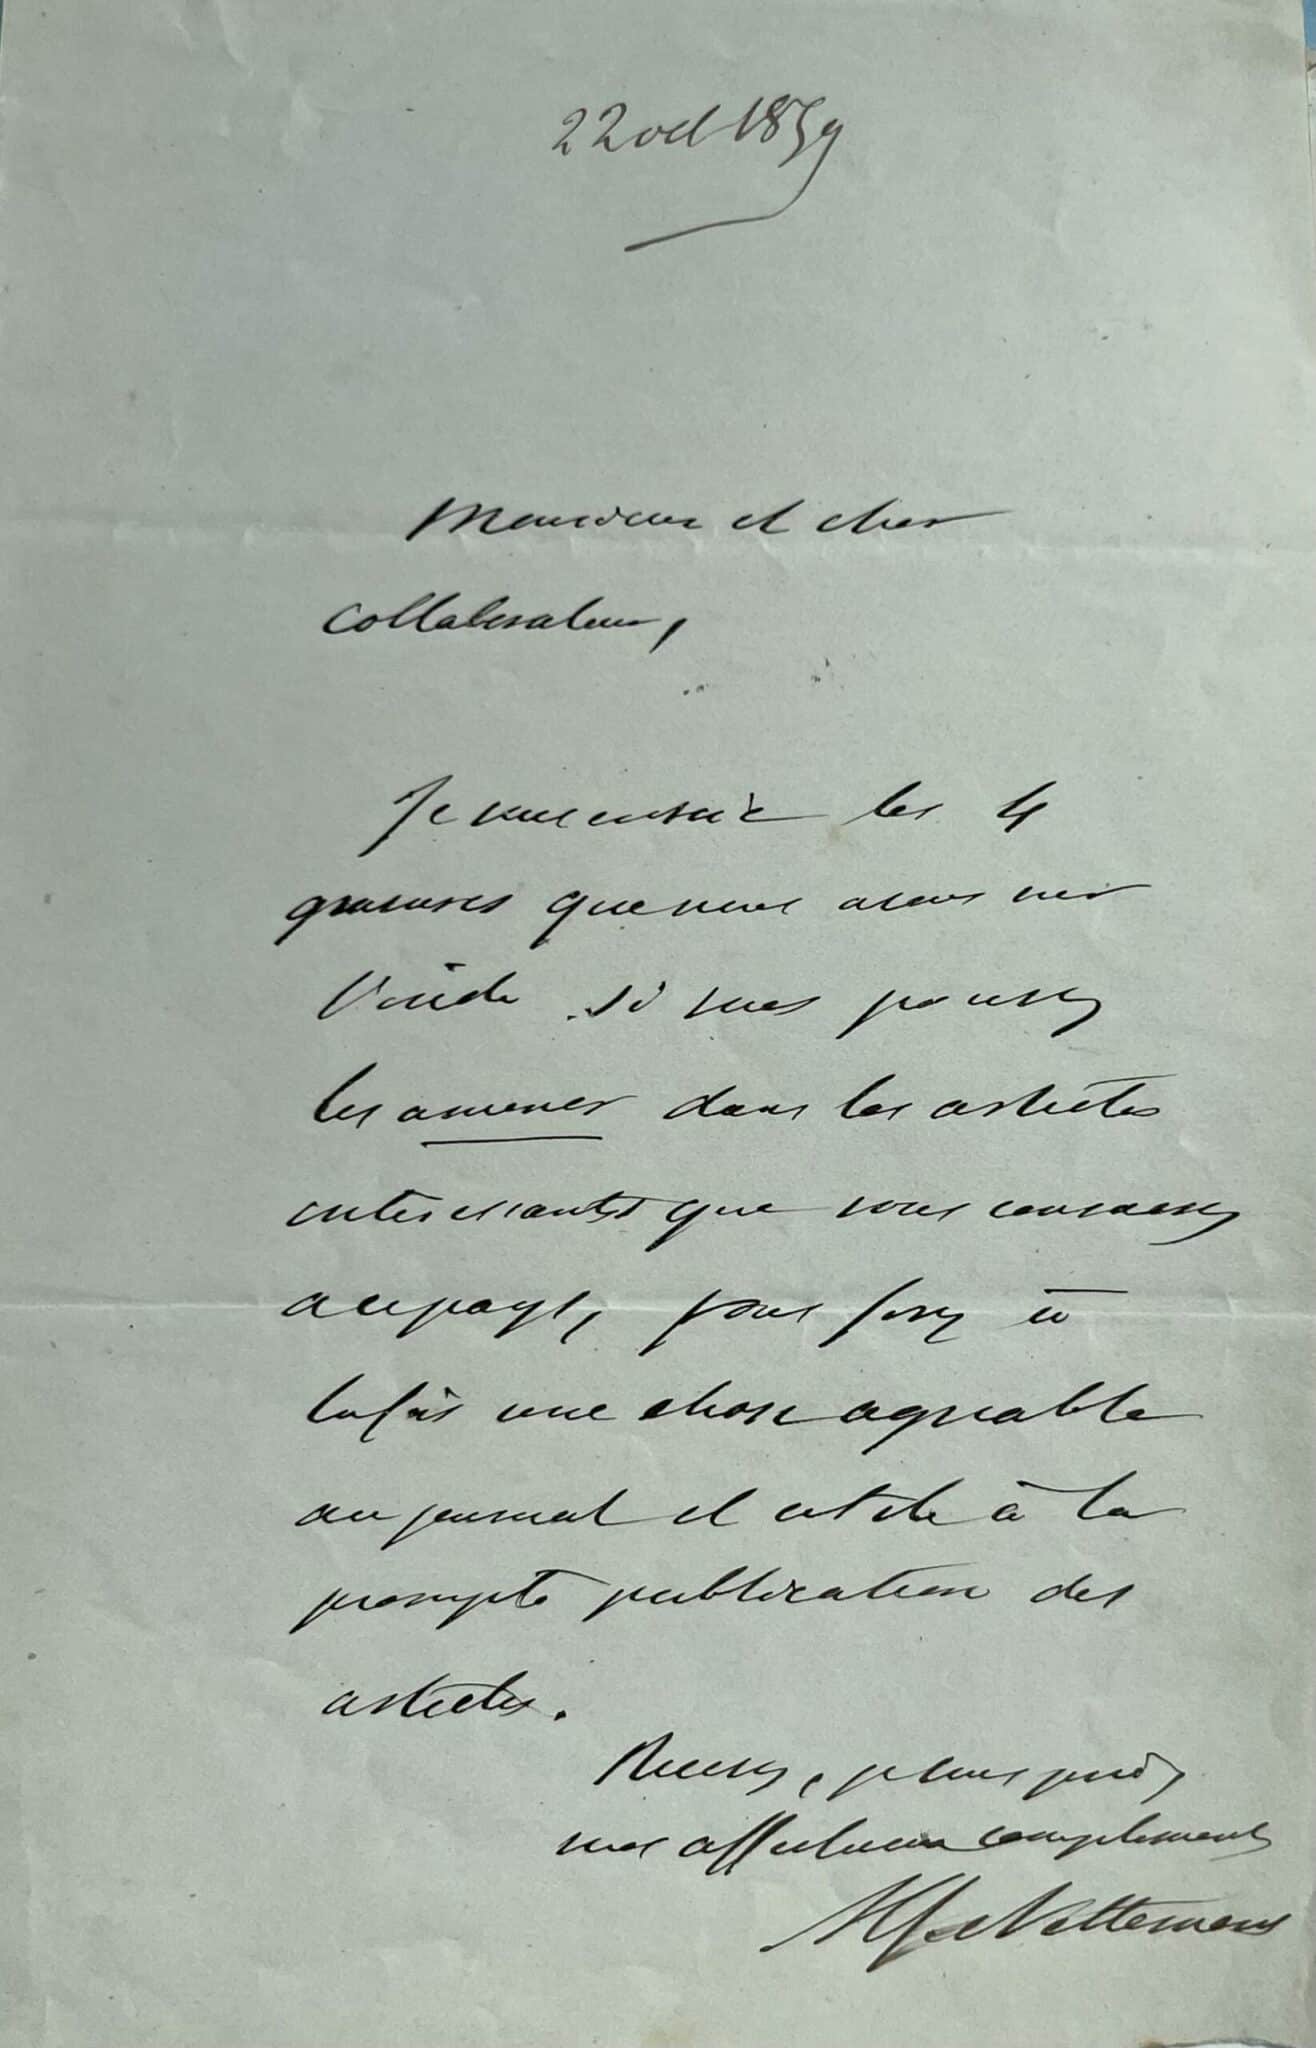 22 oct 1859
Monsieur et cher
collaborateur,
Je vous envoie les 4
gravures que nous avons sur
Vendée si vous pouvez
les amener dans les articles
intéressants que vous consacrez
au pays, vous ferez à
la fois une chose agréable
au journal et utile à la
prompte publication des
articles.
Recevez, je vous prie,
mes affectueux compliments
Alf. Nettement